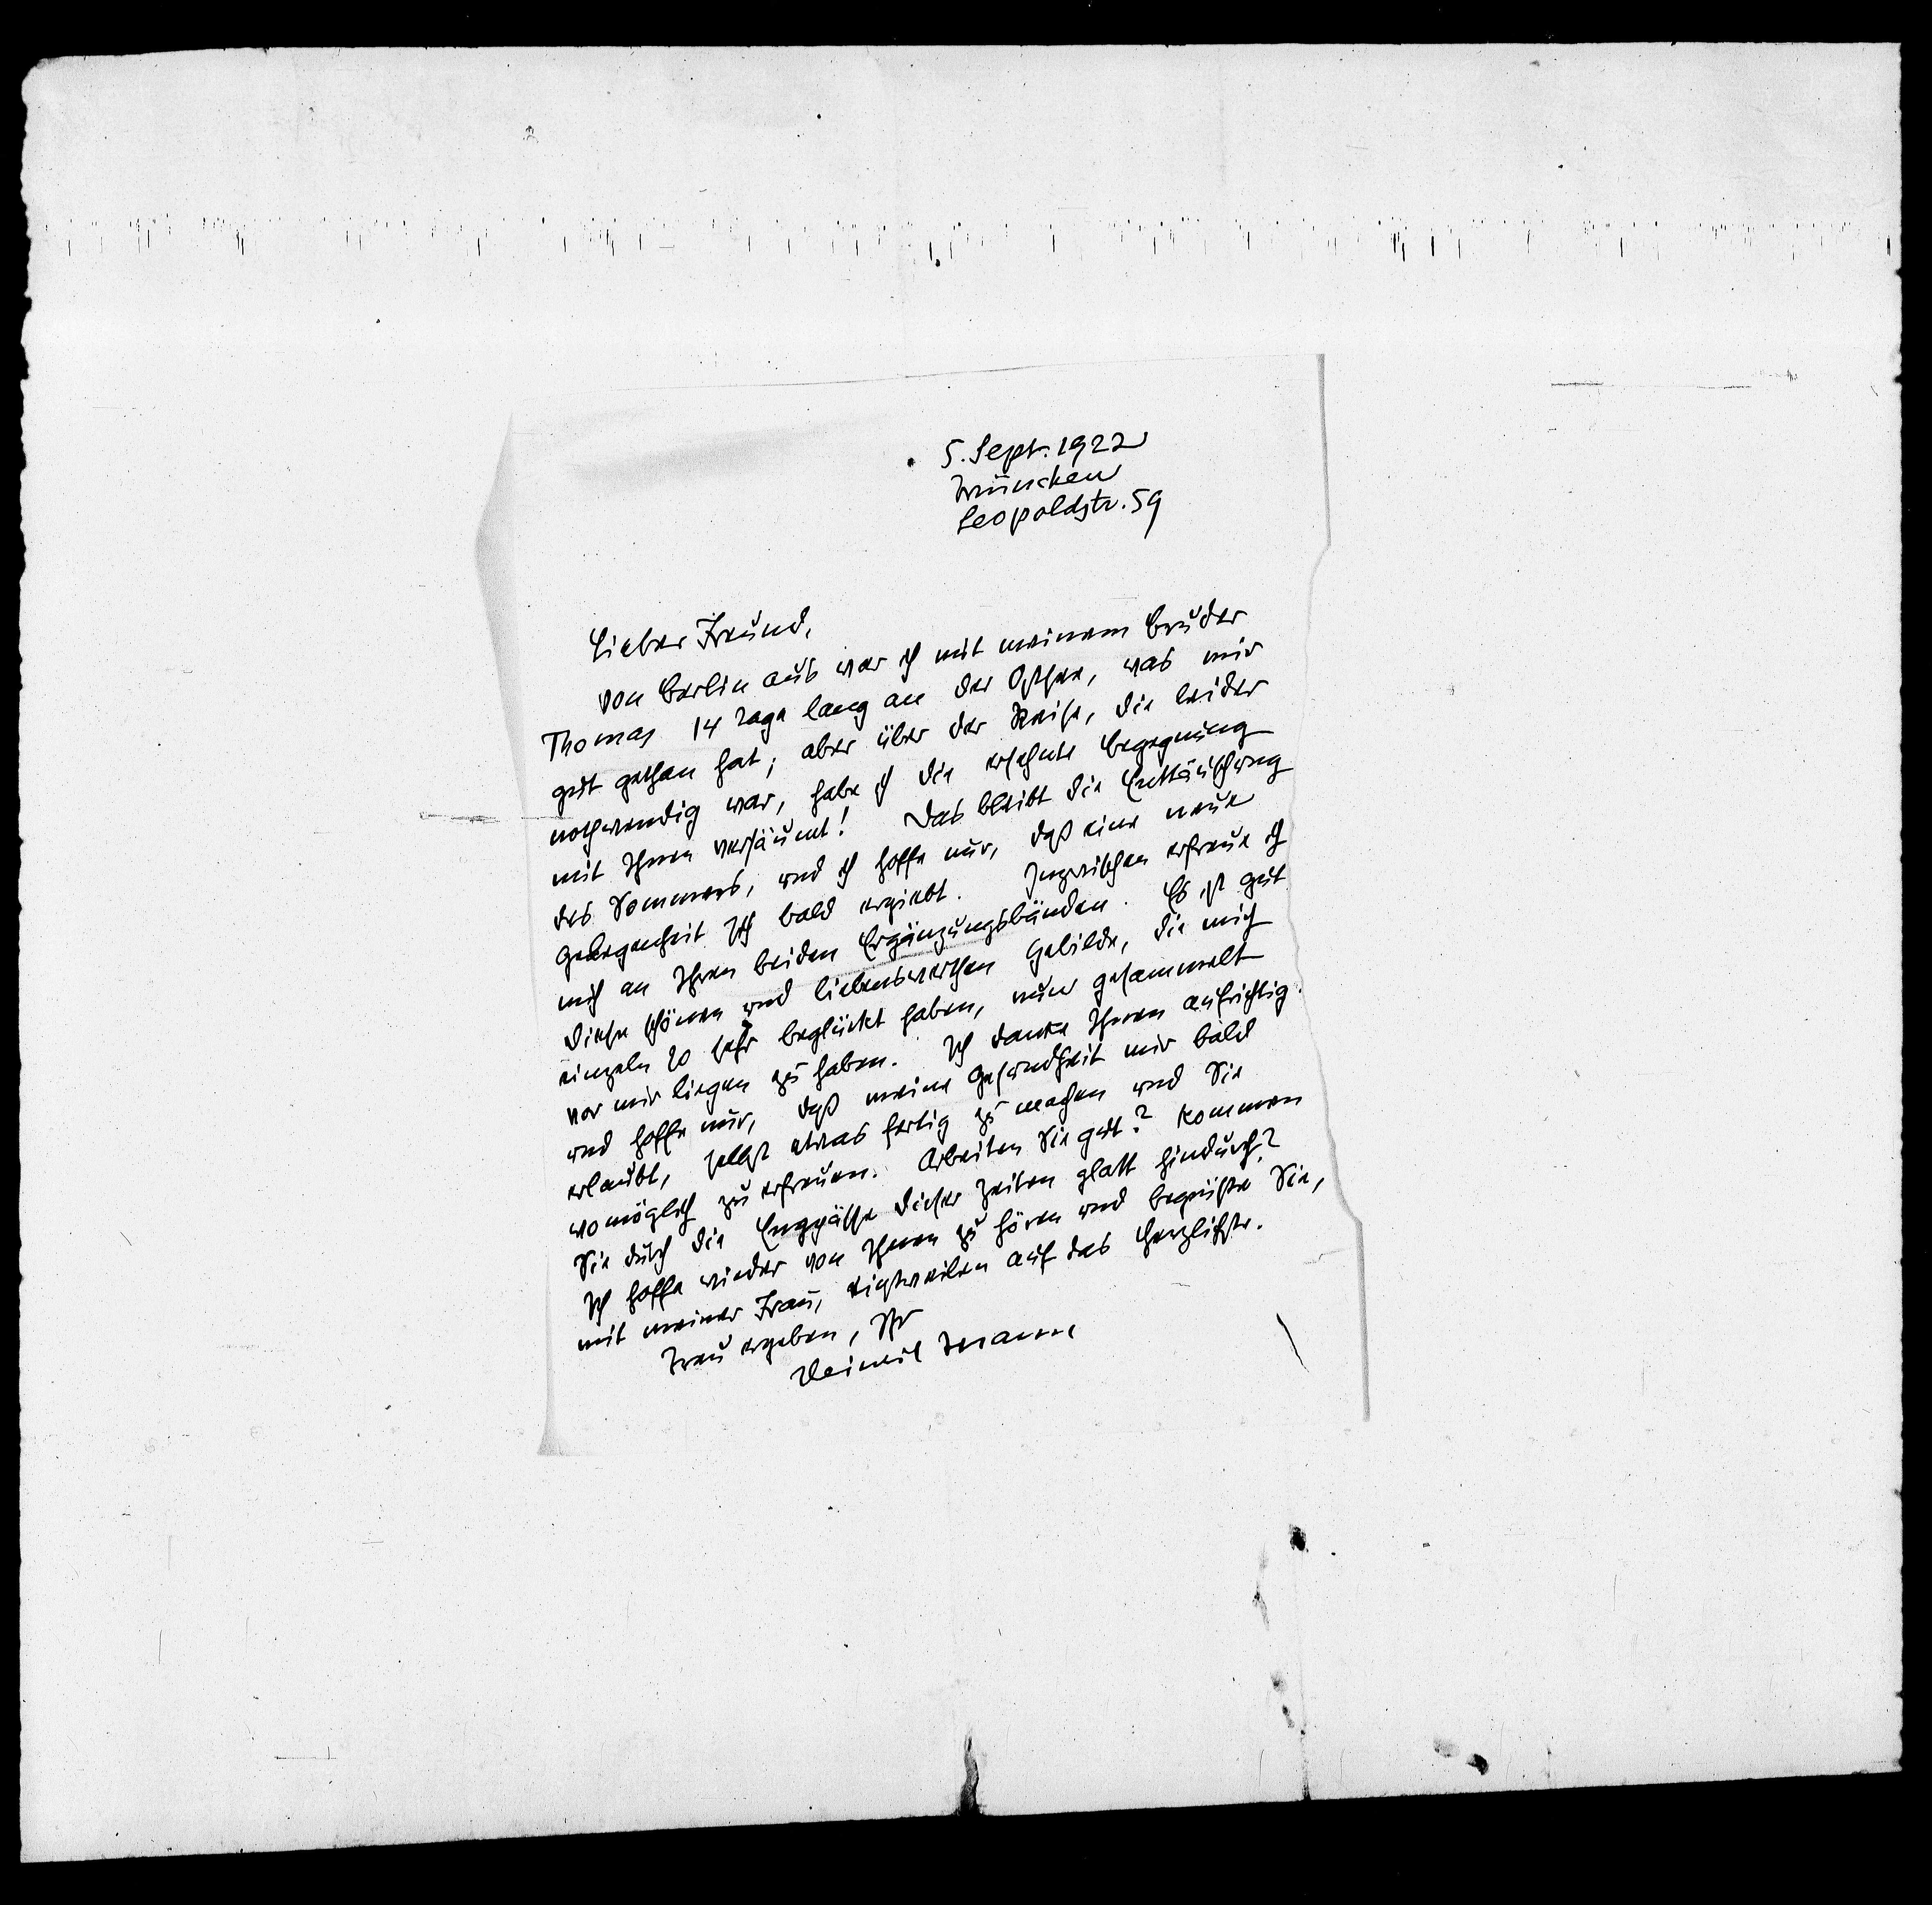 5. Sept. 1922
München
Leopoldstr. 59
Lieber Freund,
von Berlin aus war ich mit meinem Bruder
Thomas 14 Tage lang an der Ostsee, was mir
gut gethan hat; aber über der Reise, die leider
nothwendig war, habe ich die ersehnte Begegnung
mit Ihnen versäumt! Das bleibt die Enttäuschung
des Sommers, und ich hoffe nur, daß eine neue
Gelegenheit sich bald ergiebt. Inzwischen erfreue ich
mich an Ihren beiden Ergänzungsbänden. Es ist gut
diese schönen und liebenswerthen Gebilde, die mich
einzeln so sehr beglückt haben, nun gesammelt
vor mir liegen zu haben. Ich danke Ihnen aufrichtig
und hoffe nur, daß meine Gesundheit mir bald
erlaubt, selbst etwas fertig zu machen und Sie
womöglich zu erfreuen. Arbeiten Sie gut? Kommen
Sie durch die Engpässe dieser Zeiten glatt hindurch?
Ich hoffe wieder von Ihnen zu hören und begrüße Sie,
mit meiner Frau, einstweilen auf das herzlichste.
Treu ergeben, Ihr
Heinrich Mann